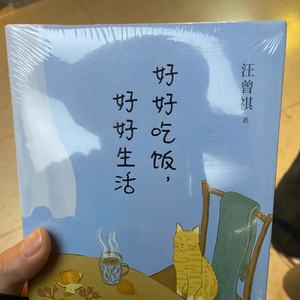 好好吃饭，
好好生活
汪曾祺 著